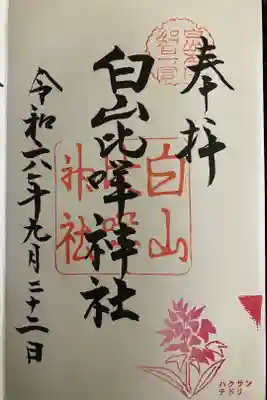 奉拝
白山比咩神社
令和六年九月二十二日
白山
神社
ハクサン
チドリ